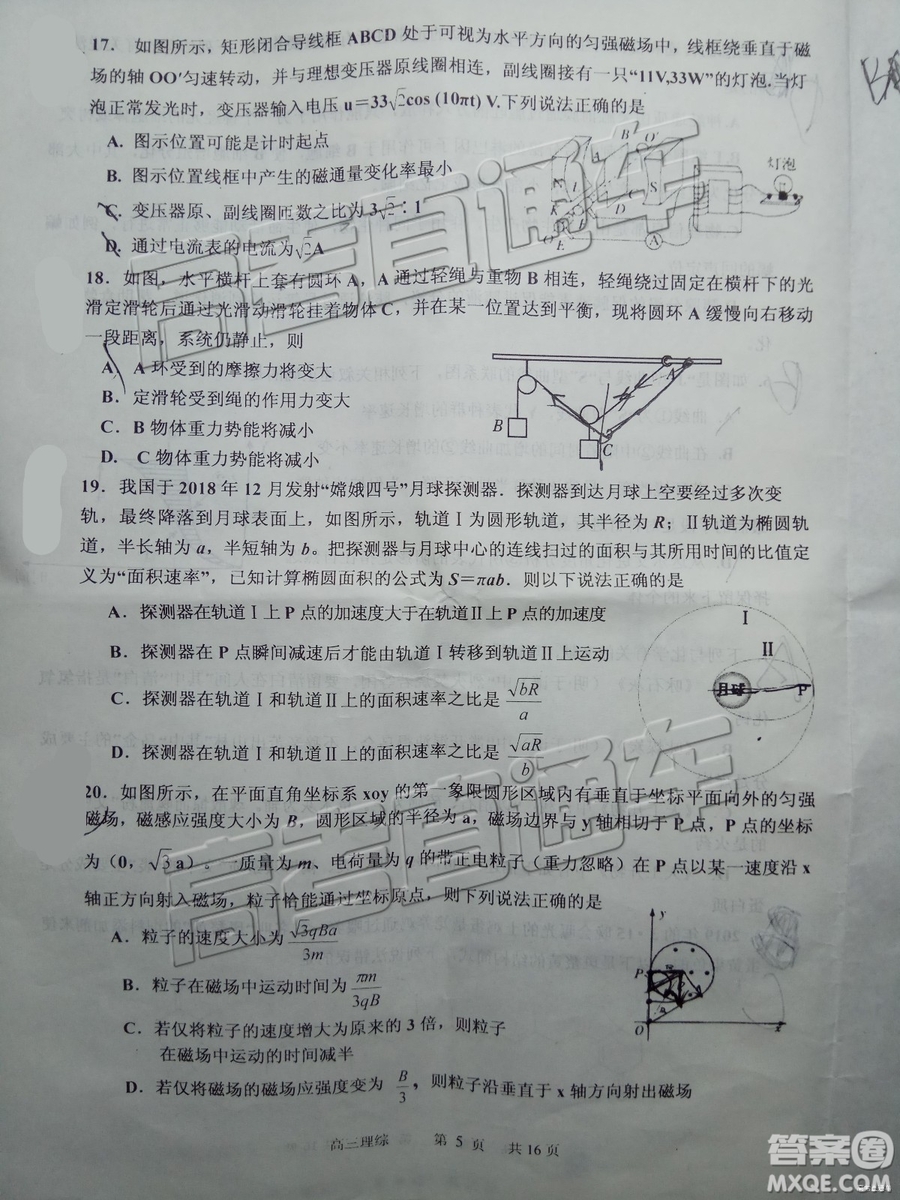 17． 如图所示，矩形闭合导线框 ABCD 处于可视为水平方向的匀强磁场中，线框绕垂直于磁
场的轴 OO′匀速转动，并与理想变压器原线圈相连，副线圈接有一只“11V,33W”的灯泡.当灯
泡正常发光时，变压器输入电压 u＝33√2cos (10πt) V.下列说法正确的是
A．图示位置可能是计时起点
B．图示位置线框中产生的磁通量变化率最小
C．变压器原、副线圈匝数之比为 3√2∶1
D．通过电流表的电流为√2A
灯泡
18．如图，水平横杆上套有圆环 A，A 通过轻绳与重物 B 相连，轻绳绕过固定在横杆下的光
滑定滑轮后通过光滑动滑轮挂着物体 C，并在某一位置达到平衡，现将圆环 A 缓慢向右移动
一段距离，系统仍静止，则
A． A 环受到的摩擦力将变大
B．定滑轮受到绳的作用力变大
C．B 物体重力势能将减小
D． C 物体重力势能将减小
A
B
C
19．我国于 2018 年 12 月发射“嫦娥四号”月球探测器．探测器到达月球上空要经过多次变
轨，最终降落到月球表面上，如图所示，轨道Ⅰ为圆形轨道，其半径为 R；Ⅱ轨道为椭圆轨
道，半长轴为 a，半短轴为 b。把探测器与月球中心的连线扫过的面积与其所用时间的比值定
义为“面积速率”，已知计算椭圆面积的公式为 S＝πab．则以下说法正确的是
A．探测器在轨道Ⅰ上 P 点的加速度大于在轨道Ⅱ上 P 点的加速度
B．探测器在 P 点瞬间减速后才能由轨道Ⅰ转移到轨道Ⅱ上运动
C．探测器在轨道Ⅰ和轨道Ⅱ上的面积速率之比是 √bR/a
D．探测器在轨道Ⅰ和轨道Ⅱ上的面积速率之比是 √aR/b
Ⅰ
Ⅱ
月球 P
20．如图所示，在平面直角坐标系 xoy 的第一象限圆形区域内有垂直于坐标平面向外的匀强
磁场，磁感应强度大小为 B，圆形区域的半径为 a，磁场边界与 y 轴相切于 P 点，P 点的坐标
为（0，√3 a）。一质量为 m、电荷量为 q 的带正电粒子（重力忽略）在 P 点以某一速度沿 x
轴正方向射入磁场，粒子恰能通过坐标原点，则下列说法正确的是
A．粒子的速度大小为 √3qBa/3m
B．粒子在磁场中运动时间为 πm/3qB
C．若仅将粒子的速度增大为原来的 3 倍，则粒子
在磁场中运动的时间减半
D．若仅将磁场的磁场应强度变为 B/3，则粒子沿垂直于 x 轴方向射出磁场
y
P
O
x
高三理综 第 5 页 共 16 页
高考直通车
高考直通车
答案圈
MXQE.COM